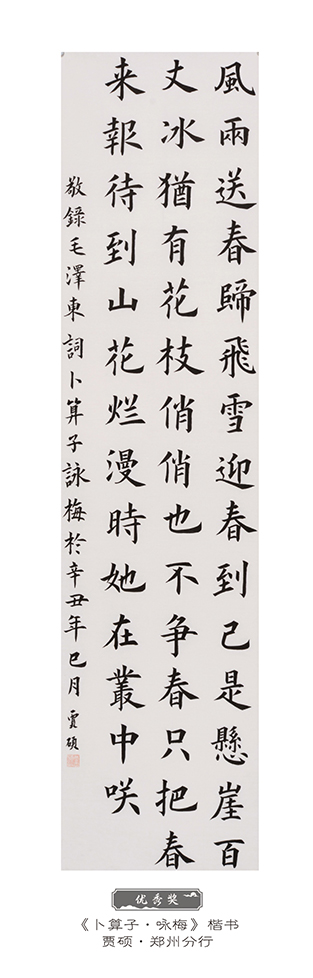 風雨送春歸飛雪迎春到已是懸崖百
丈冰猶有花枝俏俏也不争春只把春
来報待到山花烂漫時她在叢中咲
敬錄毛澤東詞卜算子詠梅於辛丑年巳月 賈碩
优秀奖
《卜算子·咏梅》楷书
贾硕·郑州分行